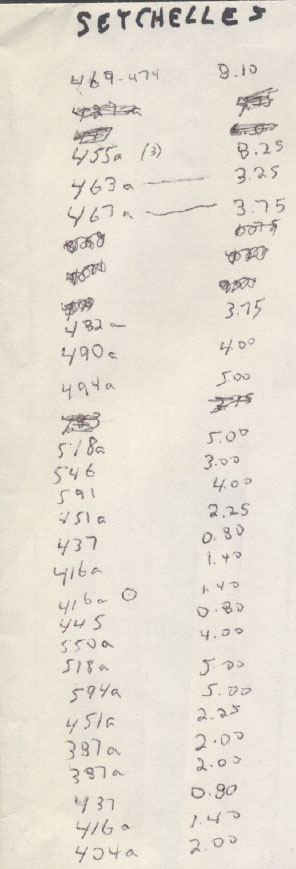 SEYCHELLES
469-474 8.10
455a (3) 8.25
463a — 3.25
467a — 3.75
482a 3.75
490a 4.00
494a 5.00
518a 5.00
546 3.00
591 4.00
451a 2.25
437 0.80
416a 1.40
416a O 1.40
445 0.80
550a 4.00
518a 5.00
594a 5.00
451a 2.25
387a 2.00
387a 2.00
437 0.80
416a 1.40
404a 2.00